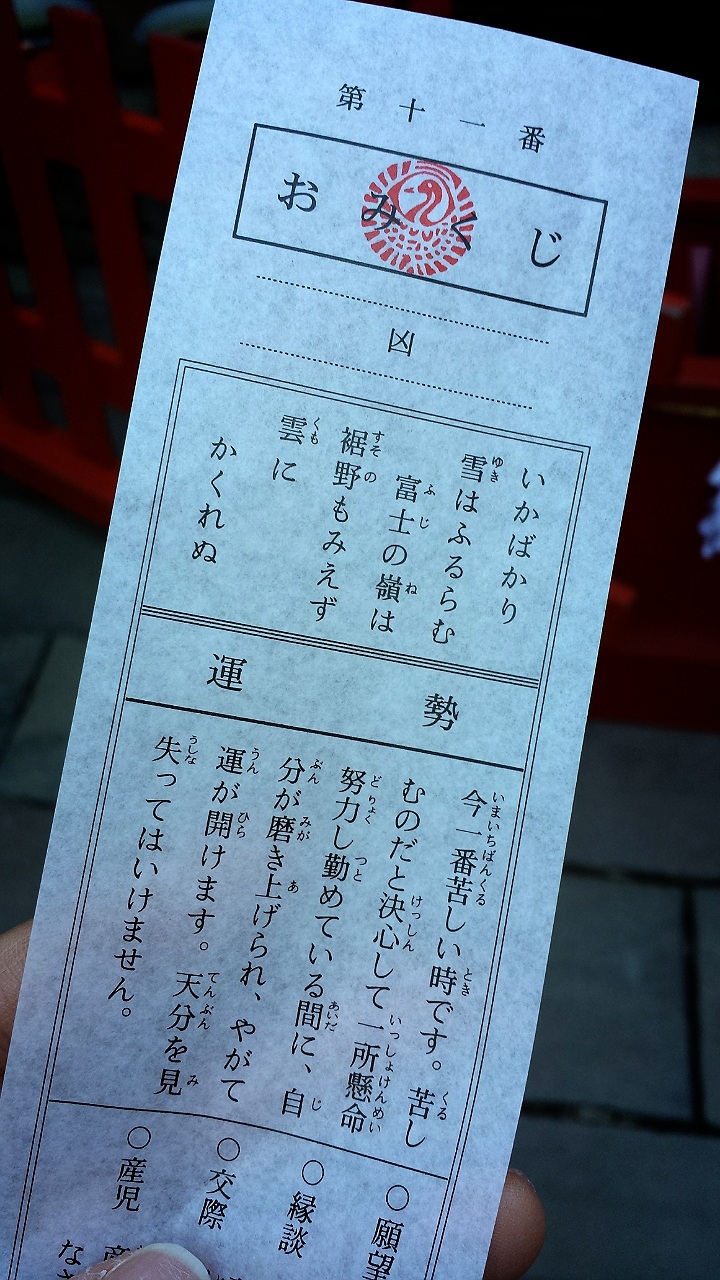 第十一番
おみくじ
凶
いかばかり
雪はふるらむ
富士の嶺は
裾野もみえず
雲に
かくれぬ
運勢
今一番苦しい時です。苦し
むのだと決心して一所懸命
努力し勤めている間に、自
分が磨き上げられ、やがて
運が開けます。天分を見
失ってはいけません。
○願望
○縁談
○交際
○産児